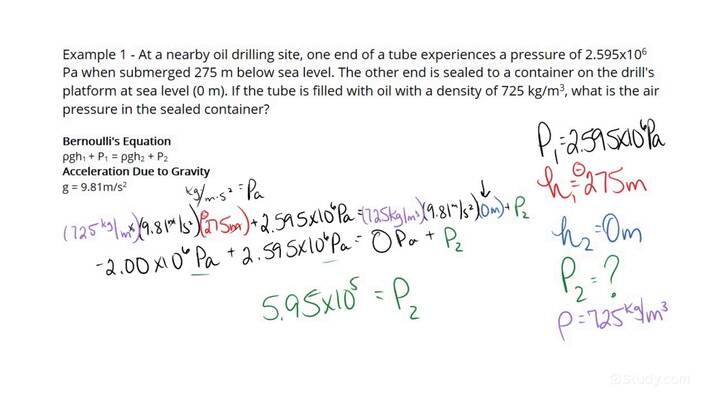 Example 1 - At a nearby oil drilling site, one end of a tube experiences a pressure of 2.595x10⁶
Pa when submerged 275 m below sea level. The other end is sealed to a container on the drill's
platform at sea level (0 m). If the tube is filled with oil with a density of 725 kg/m³, what is the air
pressure in the sealed container?
Bernoulli's Equation
ρgh₁ + P₁ = ρgh₂ + P₂
Acceleration Due to Gravity
g = 9.81m/s²
kg/m·s² = Pa
(725 kg/m³)(9.81 m/s²)(-275m) + 2.595x10⁶ Pa = (725 kg/m³)(9.81 m/s²)(0m) + P₂
-2.00x10⁶ Pa + 2.595x10⁶ Pa = 0 Pa + P₂
5.95x10⁵ = P₂
P₁ = 2.595x10⁶ Pa
h₁ = -275m
h₂ = 0m
P₂ = ?
ρ = 725 kg/m³
©Study.com